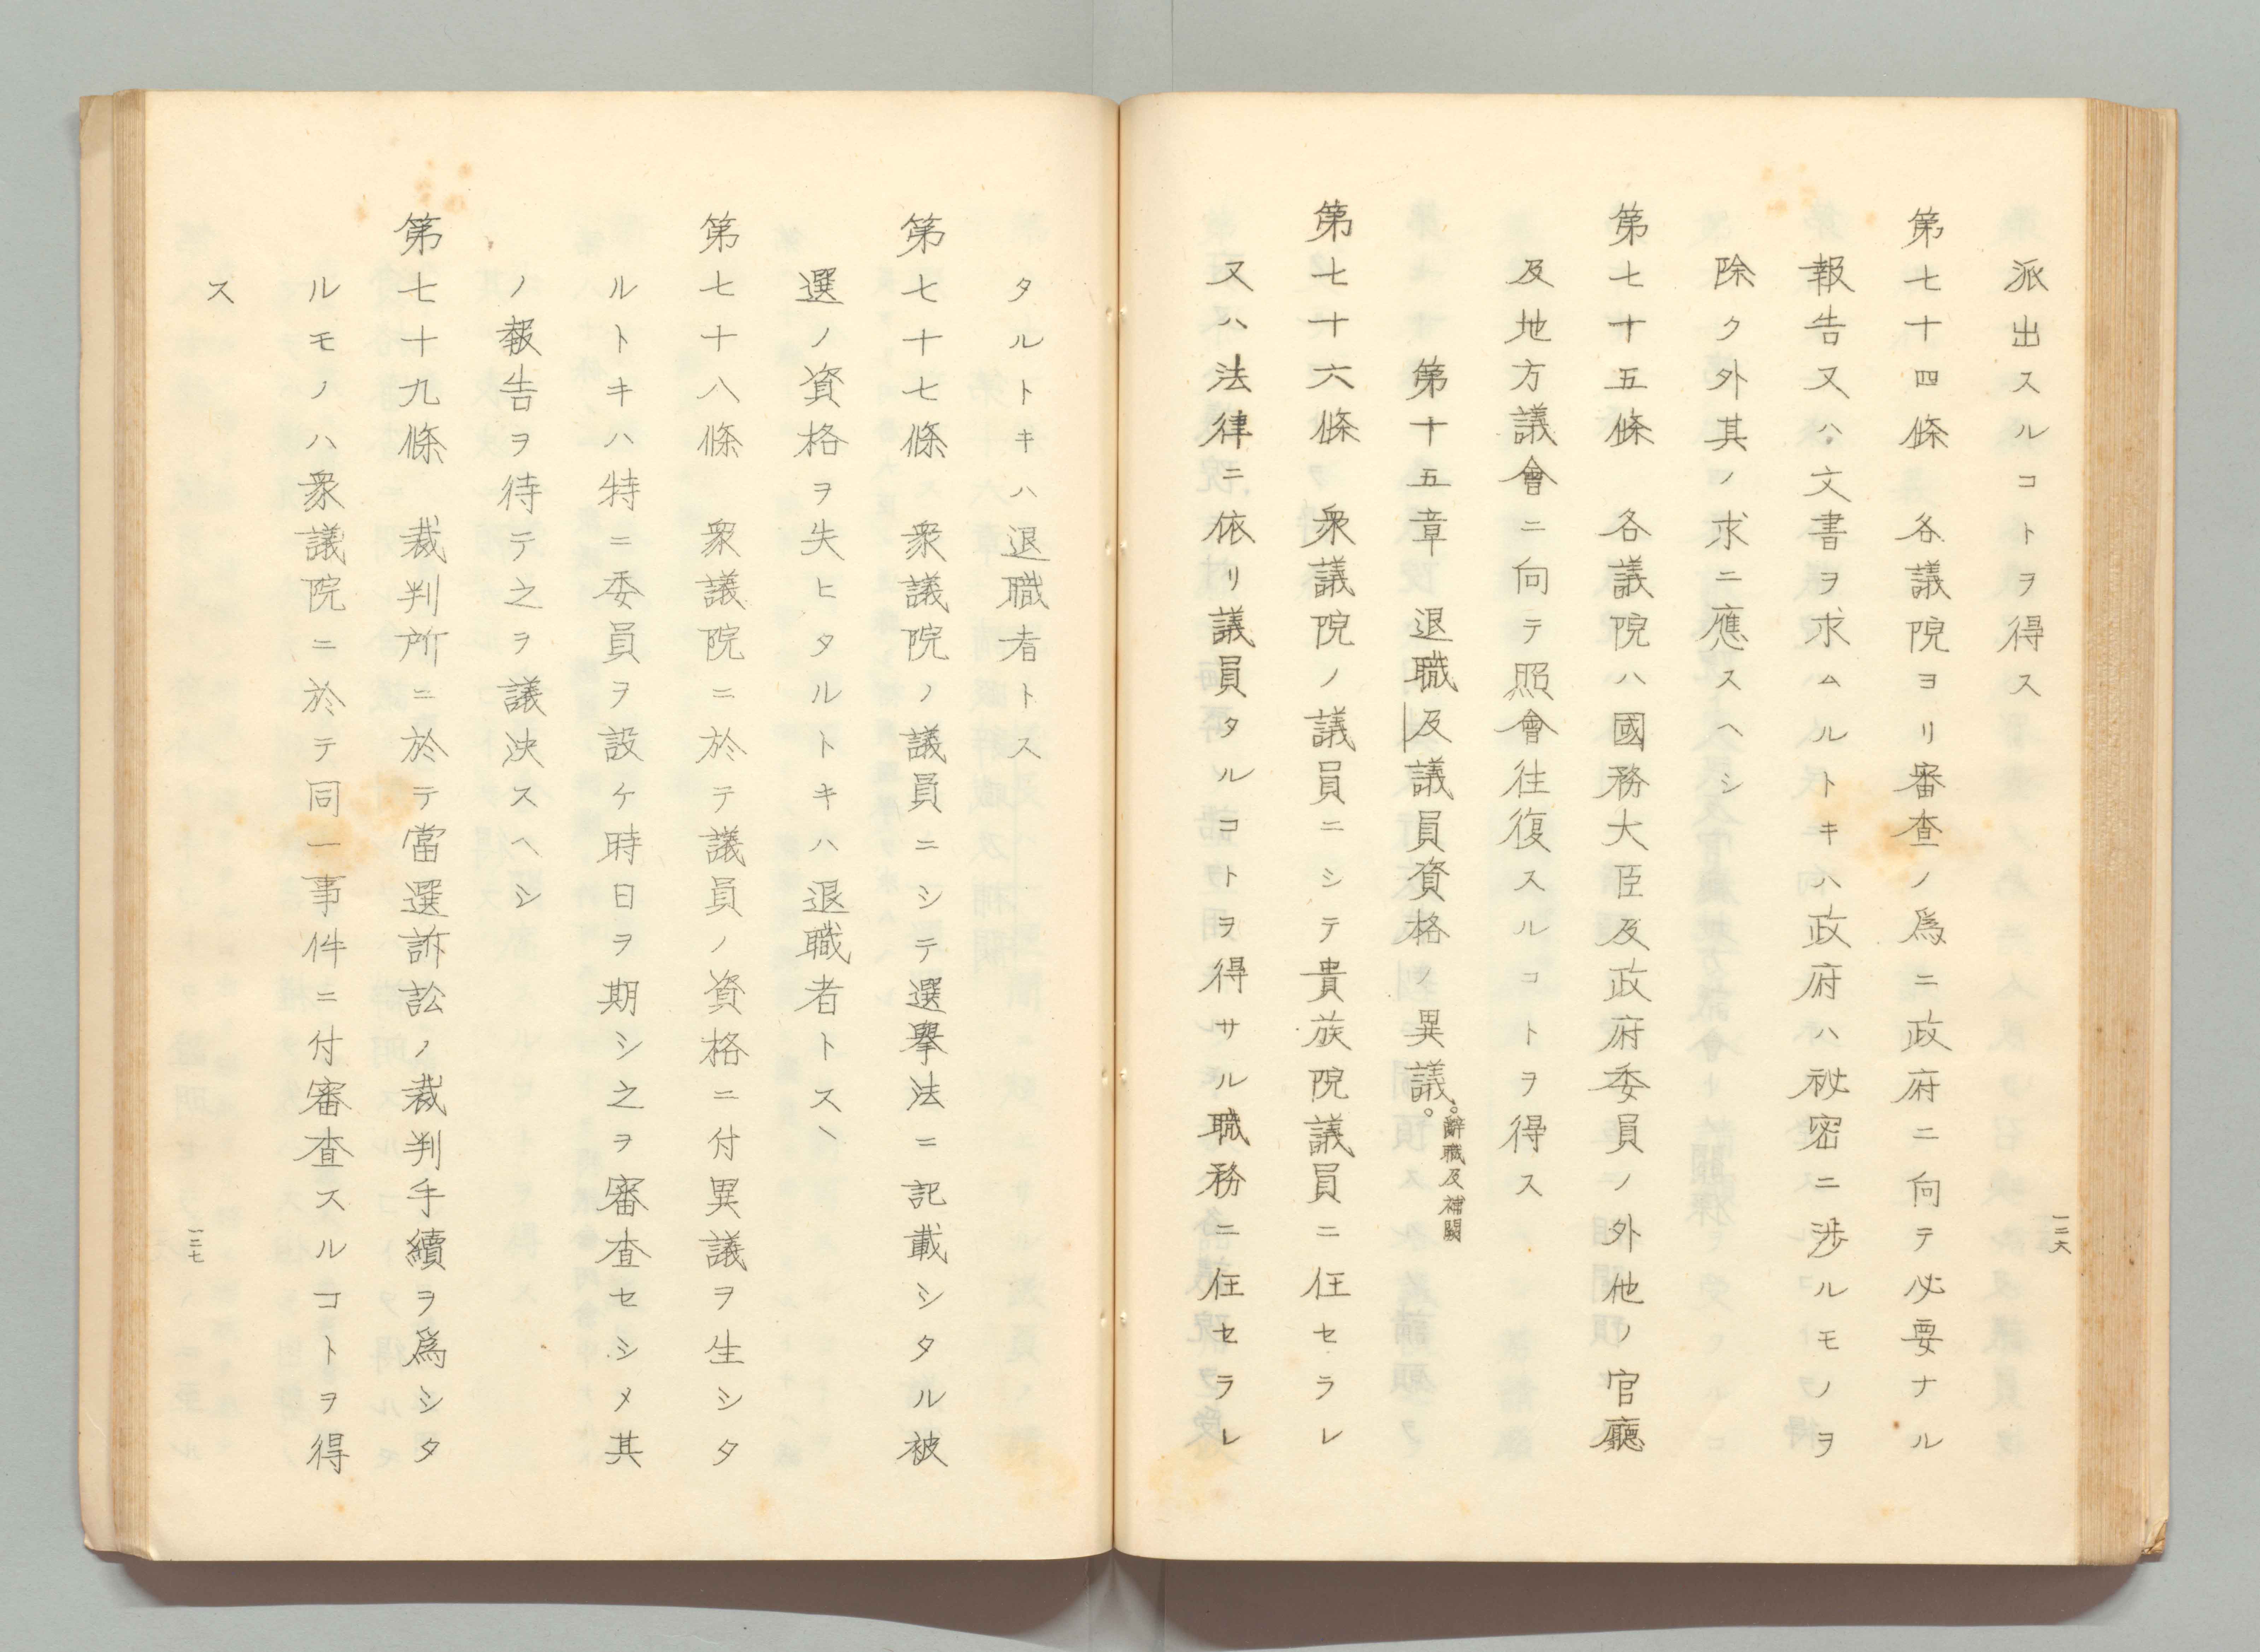 派出スルコトヲ得ス
第七十四條　各議院ヨリ審査ノ爲ニ政府ニ向テ必要ナル
報告又ハ文書ヲ求ムルトキハ政府ハ祕密ニ渉ルモノヲ
除ク外其ノ求ニ應スヘシ
第七十五條　各議院ハ國務大臣及政府委員ノ外他ノ官廳
及地方議會ニ向テ照會往復スルコトヲ得ス
第十五章　退職及議員資格ノ異議。
。辭職及補闕
第七十六條　衆議院ノ議員ニシテ貴族院議員ニ任セラレ
又ハ法律ニ依リ議員タルコトヲ得サル職務ニ任セラレ
一二六
タルトキハ退職者トス
第七十七條　衆議院ノ議員ニシテ選擧法ニ記載シタル被
選ノ資格ヲ失ヒタルトキハ退職者トス
第七十八條　衆議院ニ於テ議員ノ資格ニ付異議ヲ生シタ
ルトキハ特ニ委員ヲ設ケ時日ヲ期シ之ヲ審査セシメ其
ノ報告ヲ待テ之ヲ議決スヘシ
第七十九條　裁判所ニ於テ當選訴訟ノ裁判手續ヲ爲シタ
ルモノハ衆議院ニ於テ同一事件ニ付審査スルコトヲ得
ス
一二七